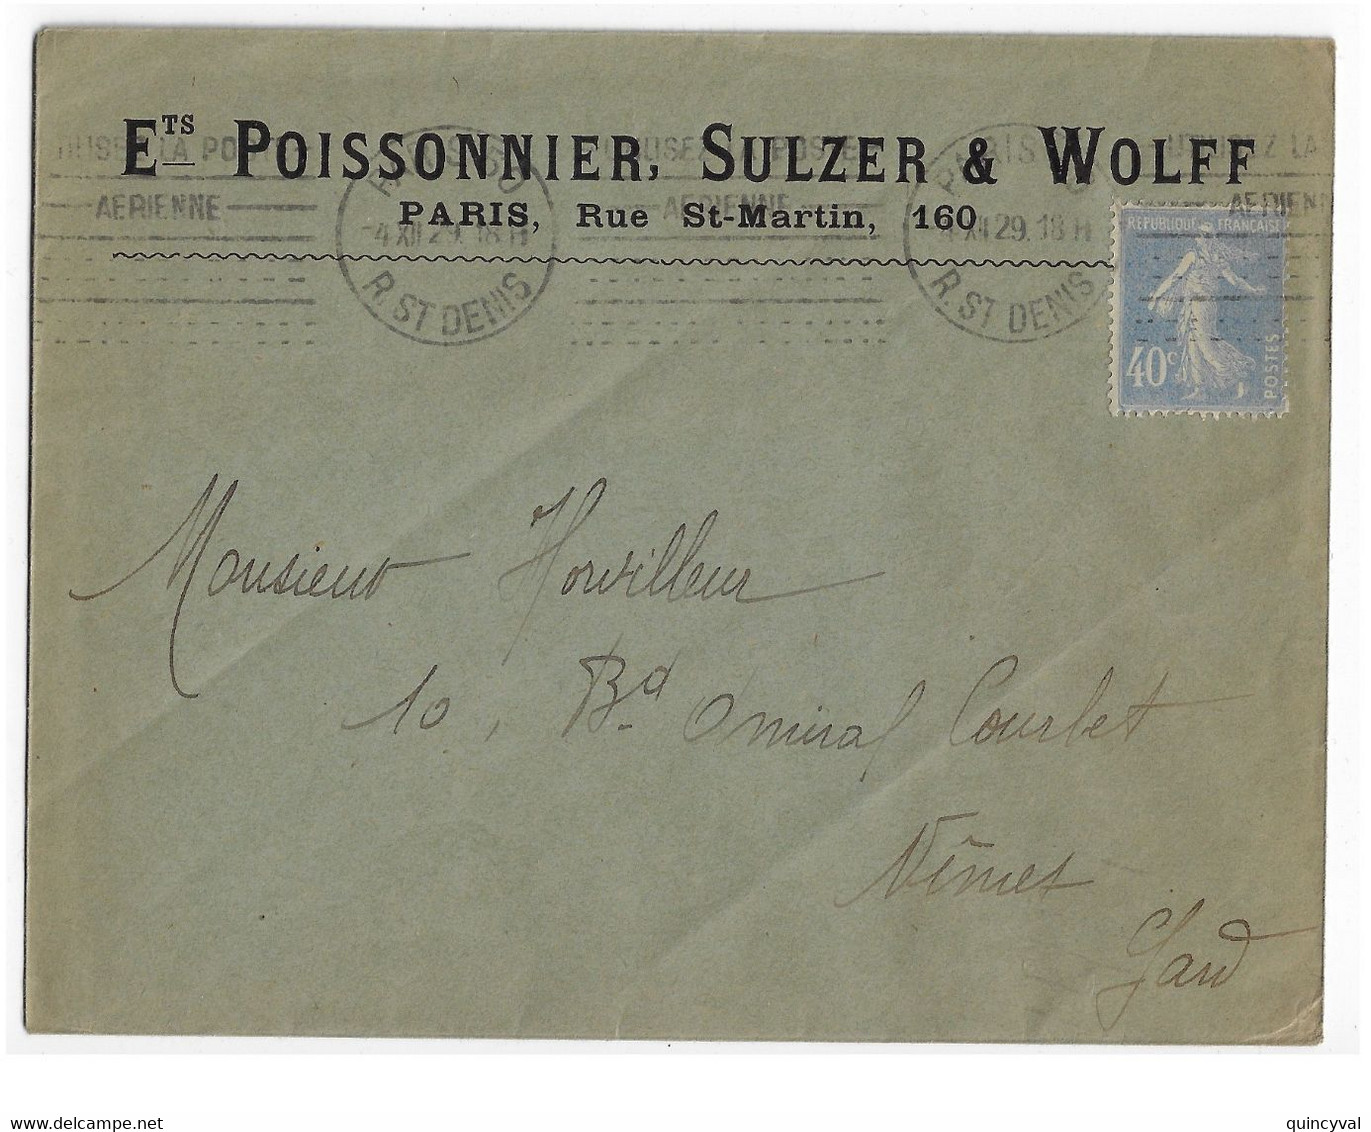 ETS POISSONNIER, SULZER & WOLFF
PARIS, Rue St-Martin, 160
UTILISEZ LA POSTE
AERIENNE
PARIS
-4 XII 29. 18 H
R. ST DENIS
AERIENNE
PARIS
-4 XII 29. 18 H
R. ST DENIS
UTILISEZ LA
AERIENN
REPUBLIQUE FRANCAISE
40c
POSTES
Monsieur Horvilleur
10, Bd Amiral Courbet
Nîmes
Gard
quincyval
delcampe.net